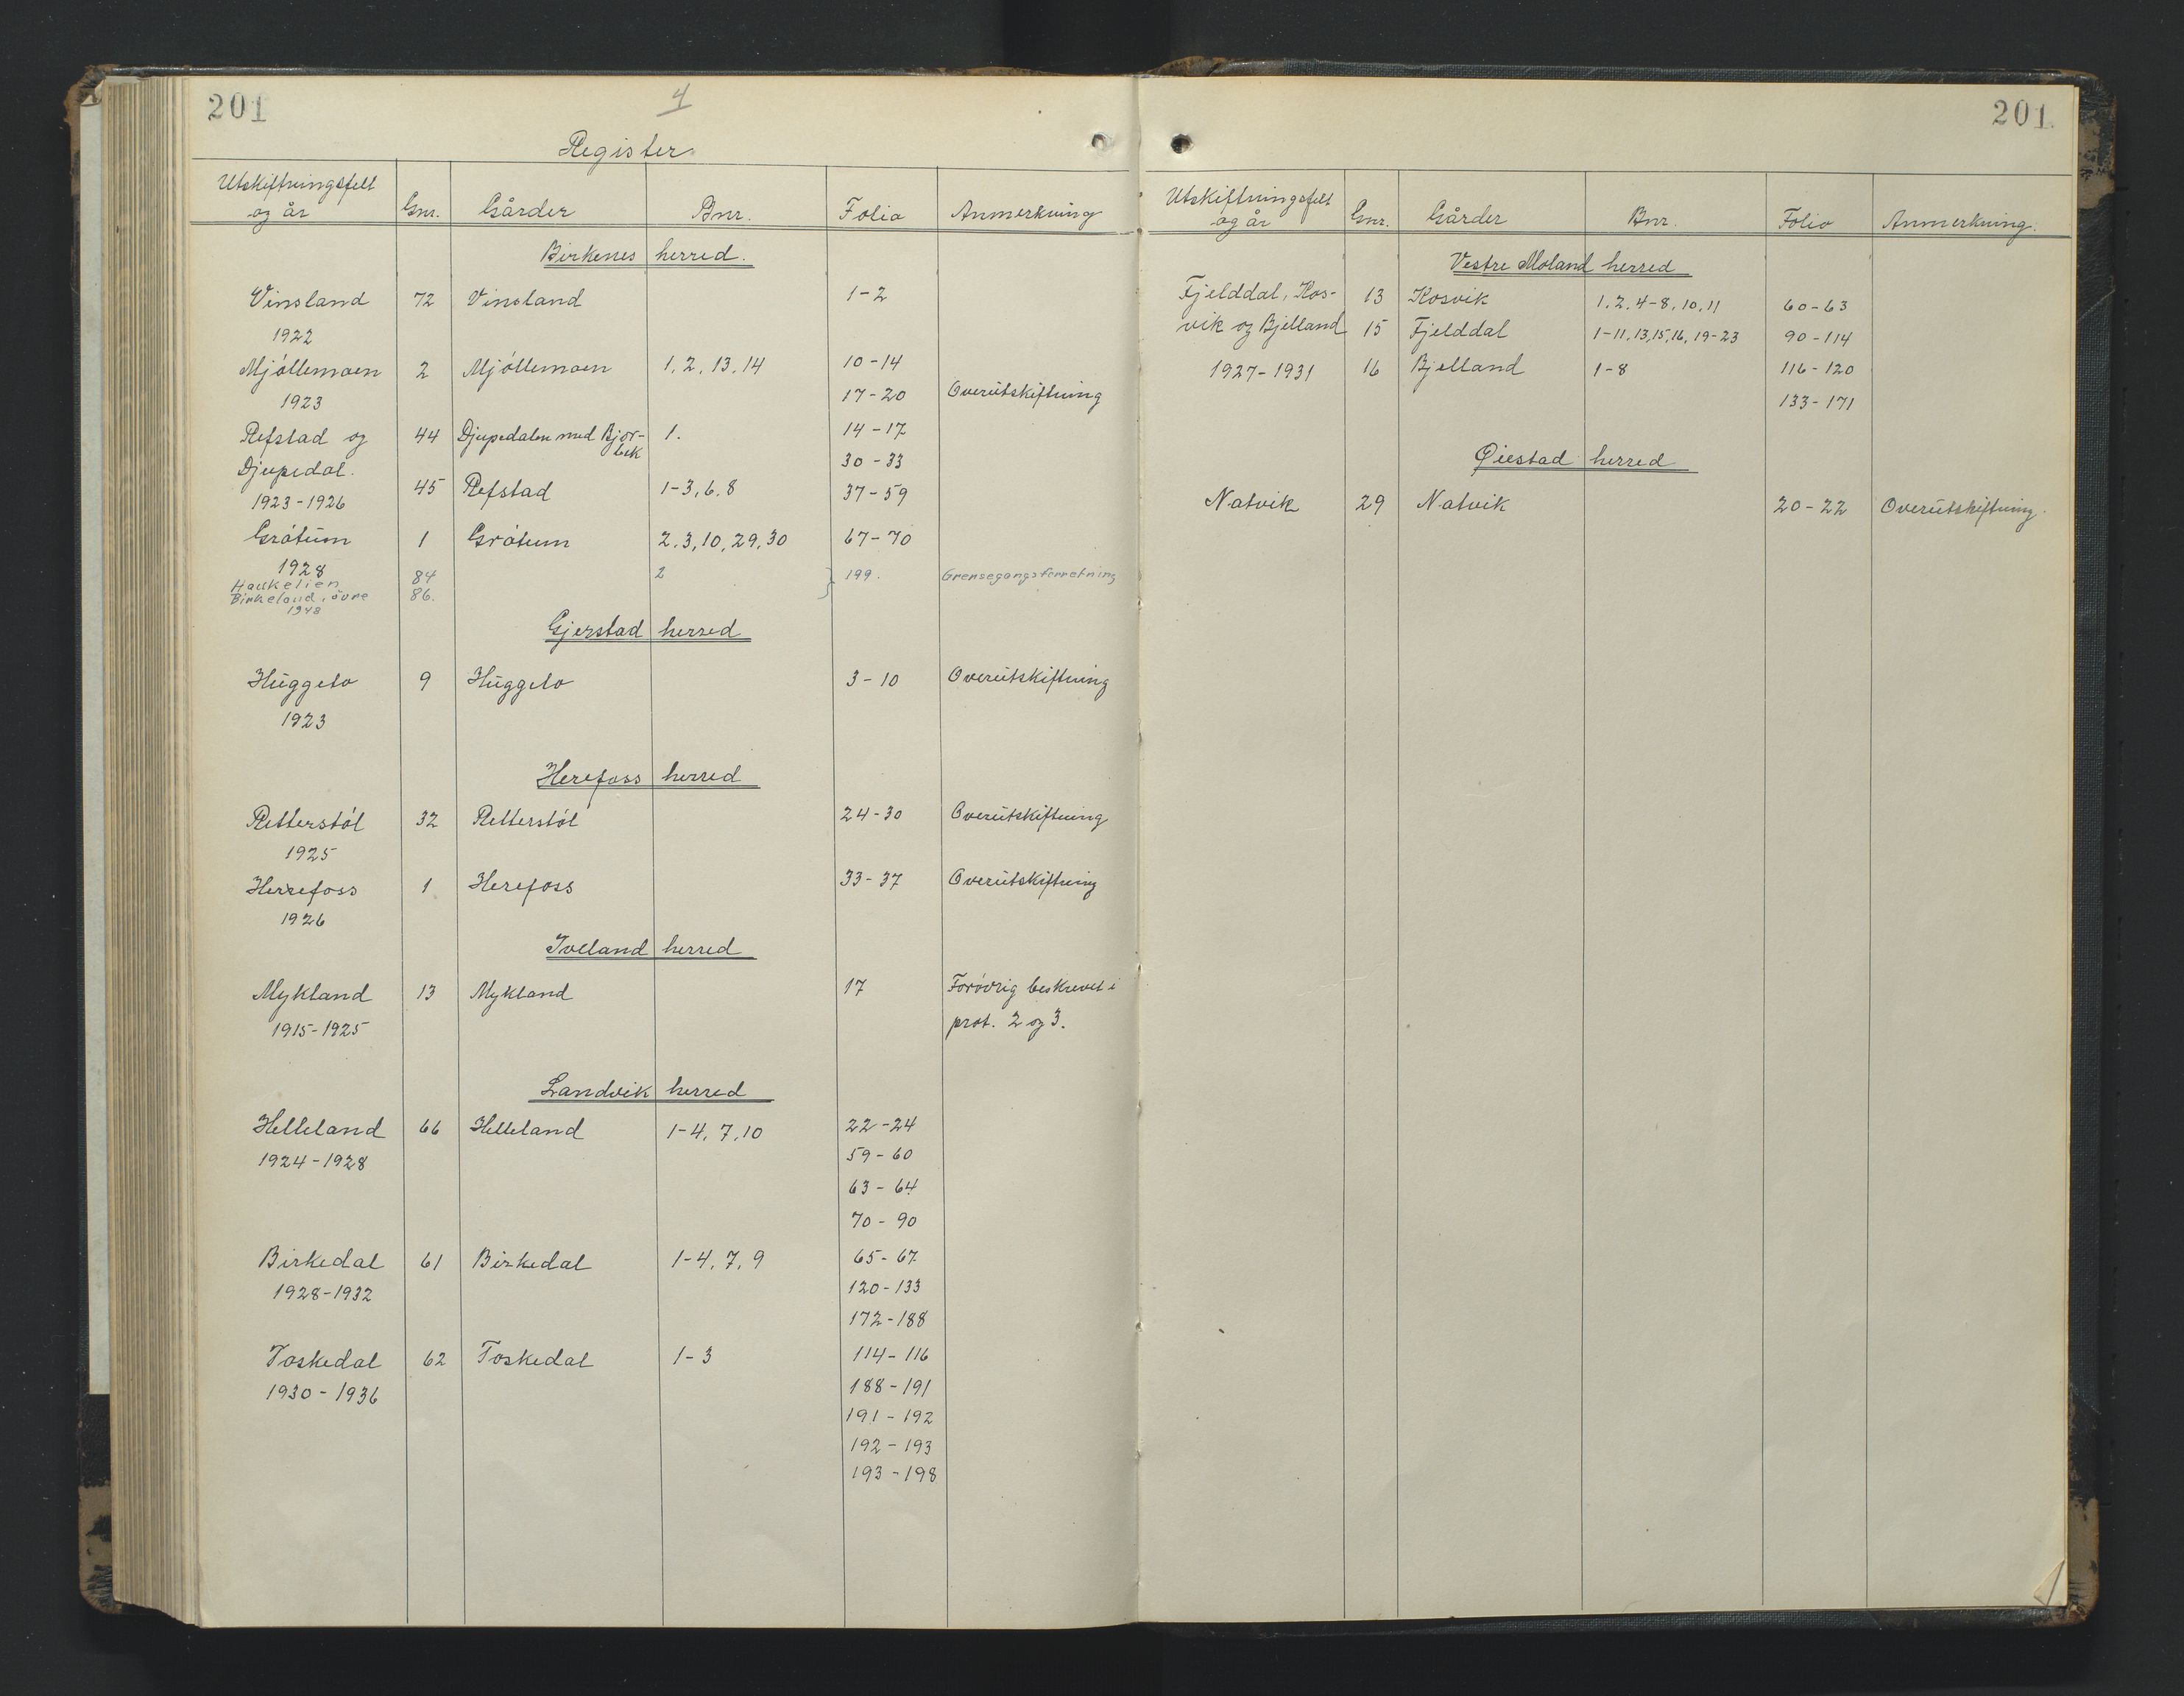 201
4
Register
Utskiftningsfelt og år Gnr. Gårder Bnr. Folio Anmerkning
Birkenes herred.
Vinsland 72 Vinsland 1-2
1922
Mjóllemoen 2 Mjóllemoen 1, 2, 13, 14 10-14
1923 17-20 Overutskiftning
Refstad og 44 Djupedalen med Bjor- 1. 14-17
bek
Djupedal. 30-33
45 Refstad 1-3, 6, 8 37-59
1923-1926
Grótum 1 Grótum 2, 3, 10, 29, 30 67-70
1928
Haukelien 84 2 } 199. Grensegangsforretning
Birkeland, övre 86.
1948
Gjerstad herred
Huggeto 9 Huggeto 3-10 Overutskiftning
1923
Herefoss herred
Retterstól 32 Retterstól 24-30 Overutskiftning
1925
Herrefoss 1 Herefoss 33-37 Overutskiftning
1926
Iveland herred
Mykland 13 Mykland 17 Foróvrig beskrevet i
1915-1925 prot. 2 og 3.
Landvik herred
Helleland 66 Helleland 1-4, 7, 10 22-24
1924-1928 59-60
63-64
70-90
Birkedal 61 Birkedal 1-4, 7, 9 65-67
1928-1932 120-133
172-188
Toskedal 62 Toskedal 1-3 114-116
1930-1936 188-191
191-192
192-193
193-198
201.
Utskiftningsfelt og år Gnr. Gårder Bnr. Folio Anmerkning.
Vestre Moland herred
Fjelddal, Kos- 13 Kosvik 1, 2, 4-8, 10, 11 60-63
vik og Bjelland 15 Fjelddal 1-11, 13, 15, 16, 19-23 90-114
1927-1931 16 Bjelland 1-8 116-120
133-171
Øiestad herred
Natvik 29 Natvik 20-22 Overutskiftning.